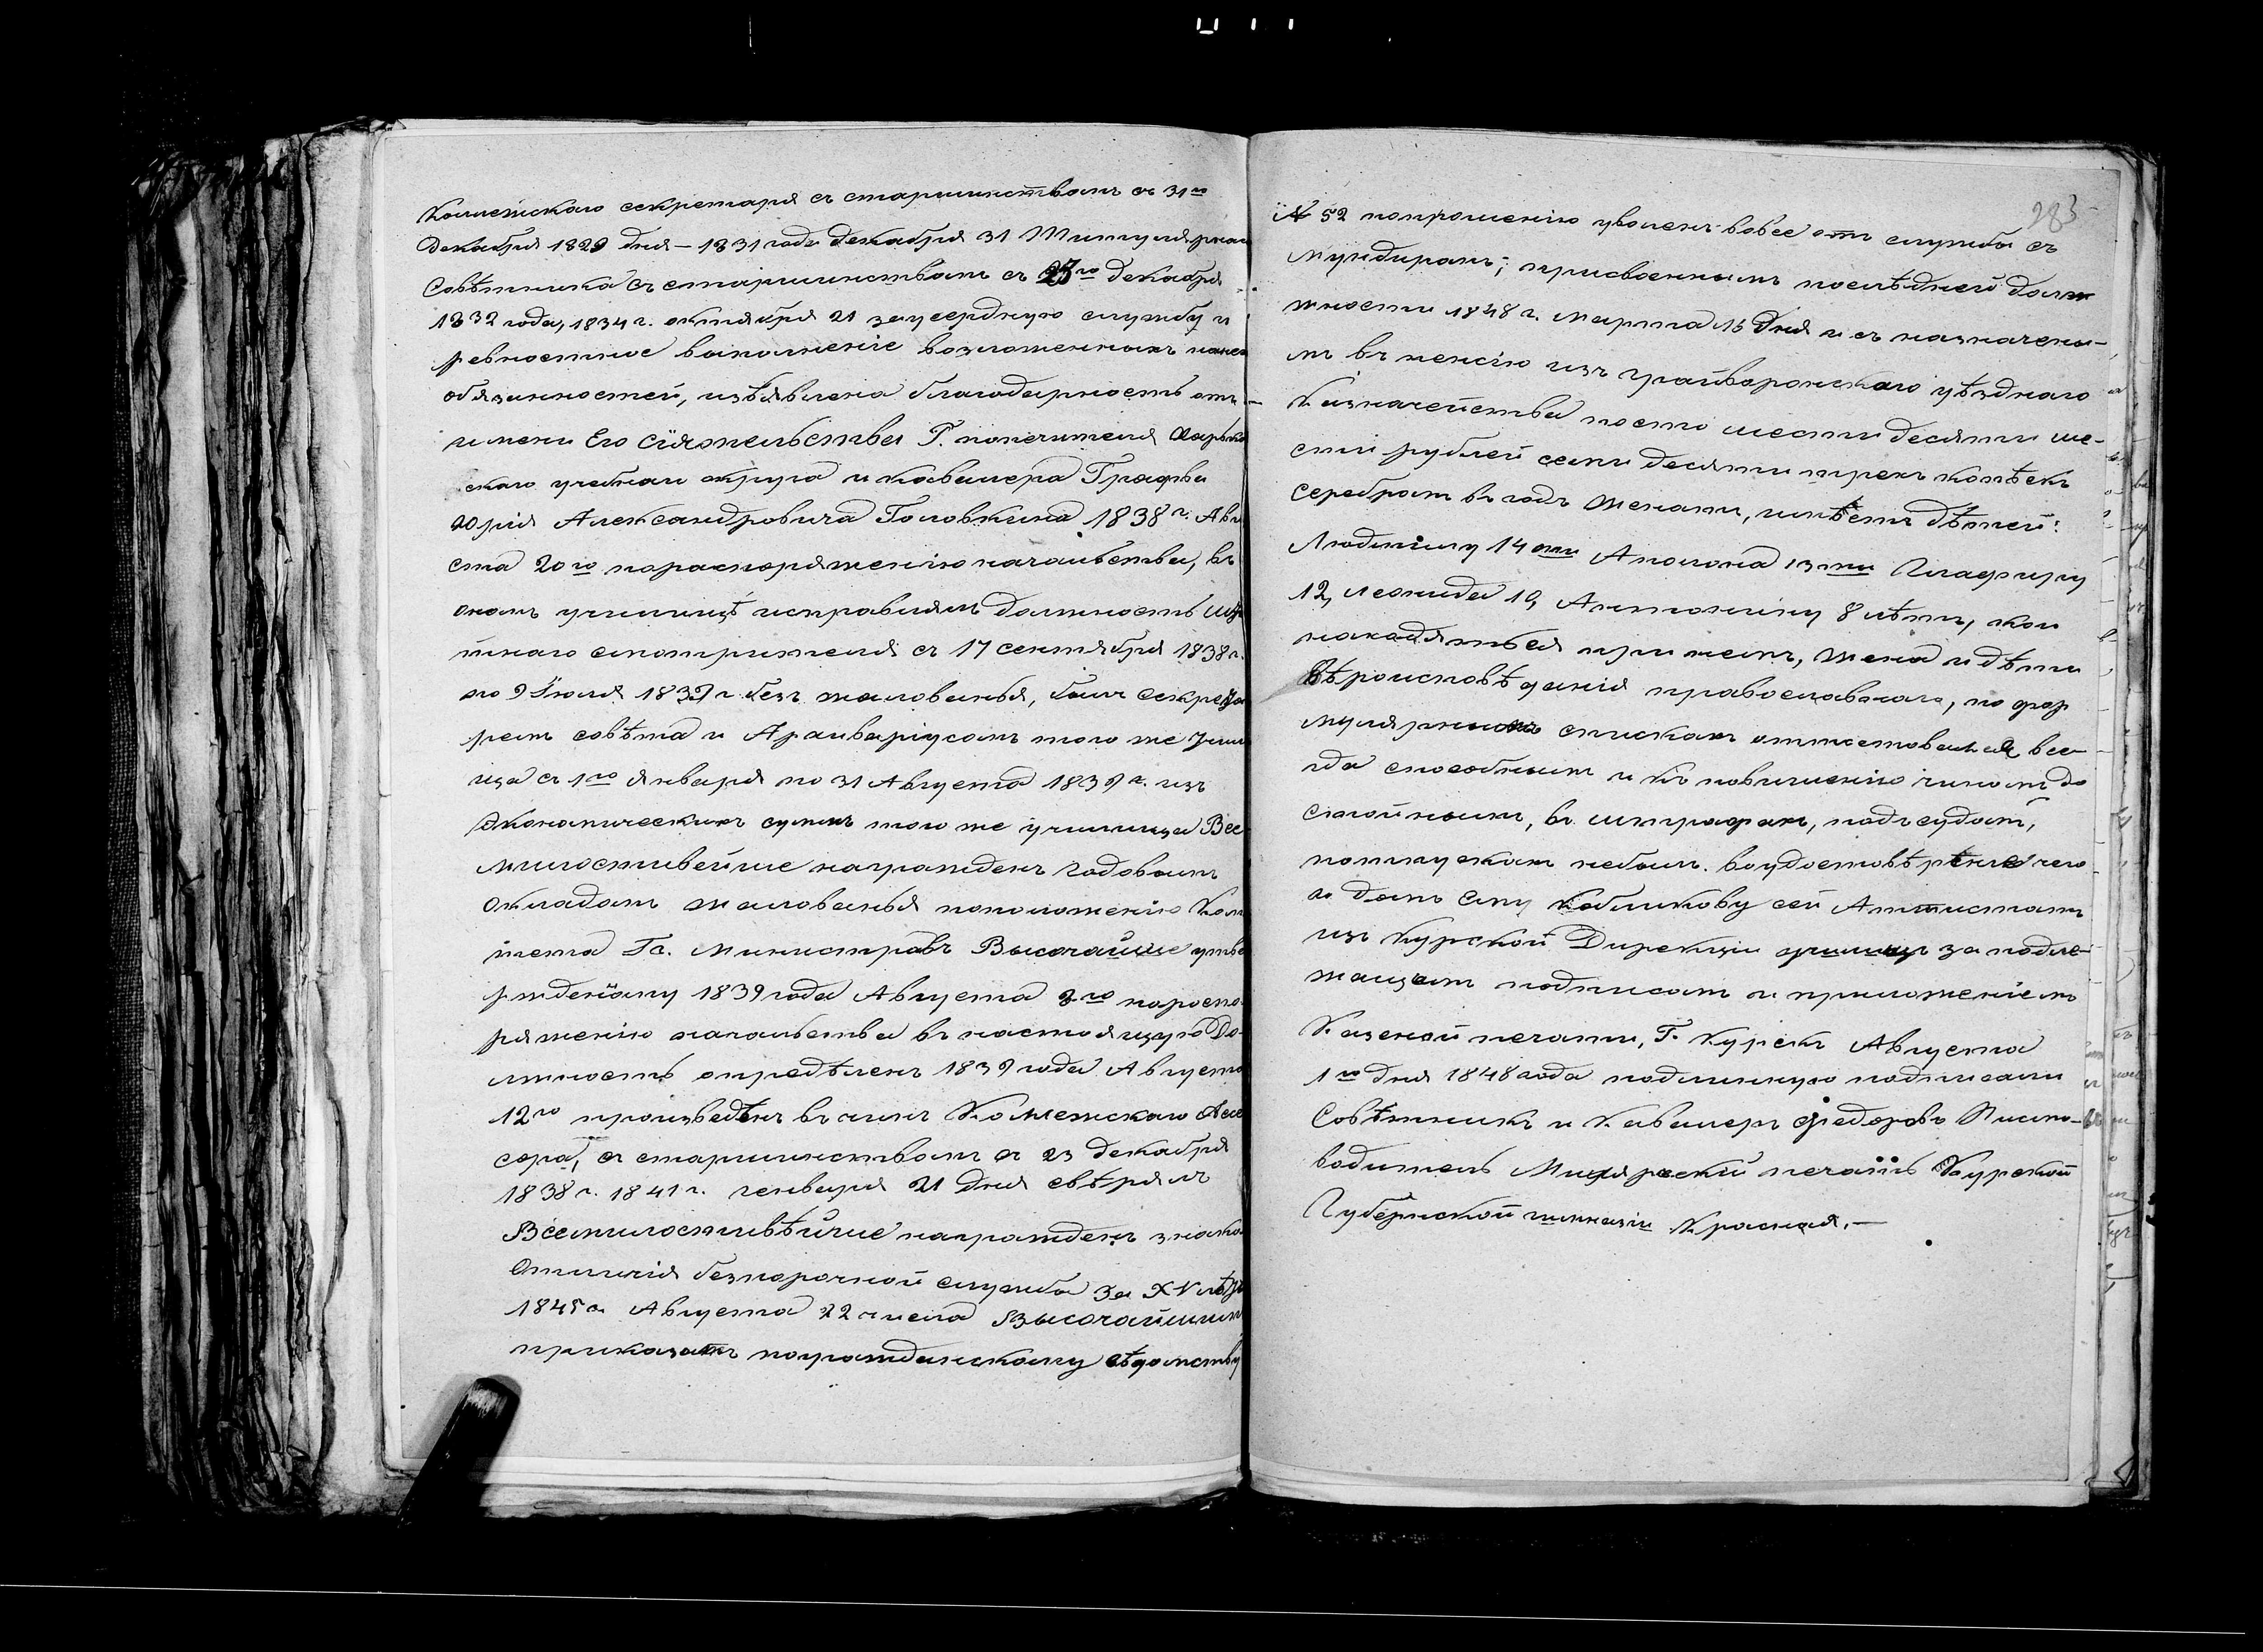 Коллежскаго секретаря съ старшинствомъ съ 31го
Декабря 1829 дня – 1831 года Декабря 31 Титулярнаго
Совѣтника съ старшинствомъ съ 23го Декабря
1832 года, 1834 г. октября 21 за усердную службу и
ревностное выполненіе возложенныхъ на него
обязанностей, изъявлена благодарность отъ
имени Его Сіятельства Г. попечителя Харько
скаго учебнаго округа и кавалера Графа
Юрія Александровича Головкина 1838 г. Авгу
ста 20го по распоряженію начальства, въ
ономъ училищѣ исправлялъ должность Шта
тнаго смотрителя съ 17 сентября 1838 г.
по 9 Іюля 1839 г. безъ жалованья, былъ секрета
ремъ совѣта и Архиваріусомъ того же Учили
ща съ 1го января по 31 Августа 1839 г. изъ
Экономическихъ суммъ того же училища Все
милостивейше награжденъ годовымъ
Окладомъ жалованья по положенію Коми
тета Гг. Министровъ Высочайше утве
ржденному 1839 года Августа 9го по распо
ряженію начальства въ настоящую До
лжность опредѣленъ 1839 года Августа
12го произведенъ въ чинъ Коллежскаго Асе
сора, съ старшинствомъ съ 23 Декабря
1838 г. 1841 г. генваря 21 дня
Всемилостивѣйше награжденъ знако
Отличія безпорочной службы За XV лѣтъ
1845 г. Августа 22 числа Высочайшимъ
приказомъ по гражданскому вѣдомству
283
№ 52 по прошенію уволенъ вовсе отъ службы съ
мундиромъ, присвоеннымъ послѣдней долж
жности 1848 г. марта 15 Дня и съ назначены-
мъ въ пенсію изъ Грайворонскаго уѣзднаго
Казначейства по сто шести десяти ше-
сти рублей семи десяти трехъ копѣекъ
Серебромъ въ годъ Женатъ, имѣетъ дѣтей:
Людмилу 14ти Аполона 13ти Глафиру
12, Леонида 10, Антонину 8 лѣтъ, кои
находяться при немъ, жена и дѣти
вѣроисповѣданія православнаго, по фор
мулярнымъ спискамъ аттестовался все
гда способнымъ и къ повышенію чиномъ до
стойнымъ, въ штрафахъ, подъ судомъ,
по отпускамъ небылъ. Въ удостовѣреніе чего
и данъ ему Кобликову сей Аттестатъ
изъ Курской Дирекціи училищъ за подле-
жащимъ подписомъ и приложеніемъ
Казеной печати, Г. Курскъ Августа
1го дня 1848 года подлинную подписали
Совѣтникъ и Кавалеръ Федоровъ Письмо-
водитель печать Курской
Губернской гимназіи Красная. –